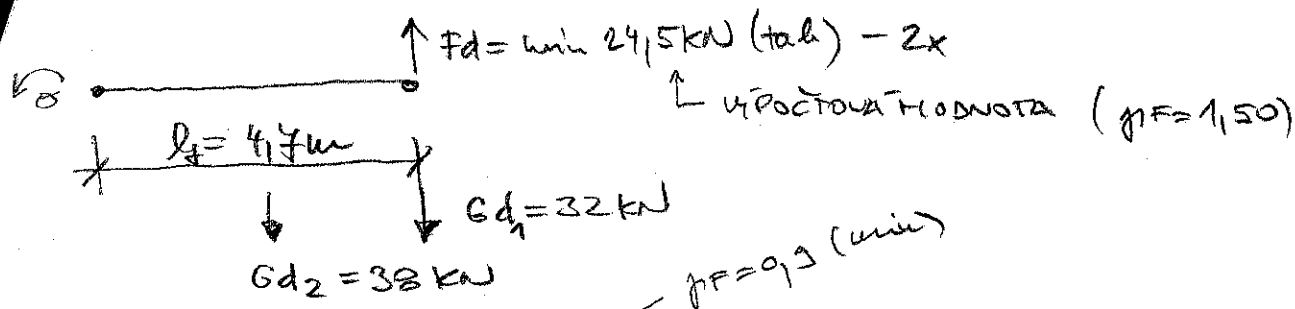 Fd = min 24,5 kN (tah) – 2x
VÝPOČTOVÁ HODNOTA (γF=1,50)
l₁= 4,7m
Gd₁ = 32 kN
Gd₂ = 38 kN
γF=0,9 (min)